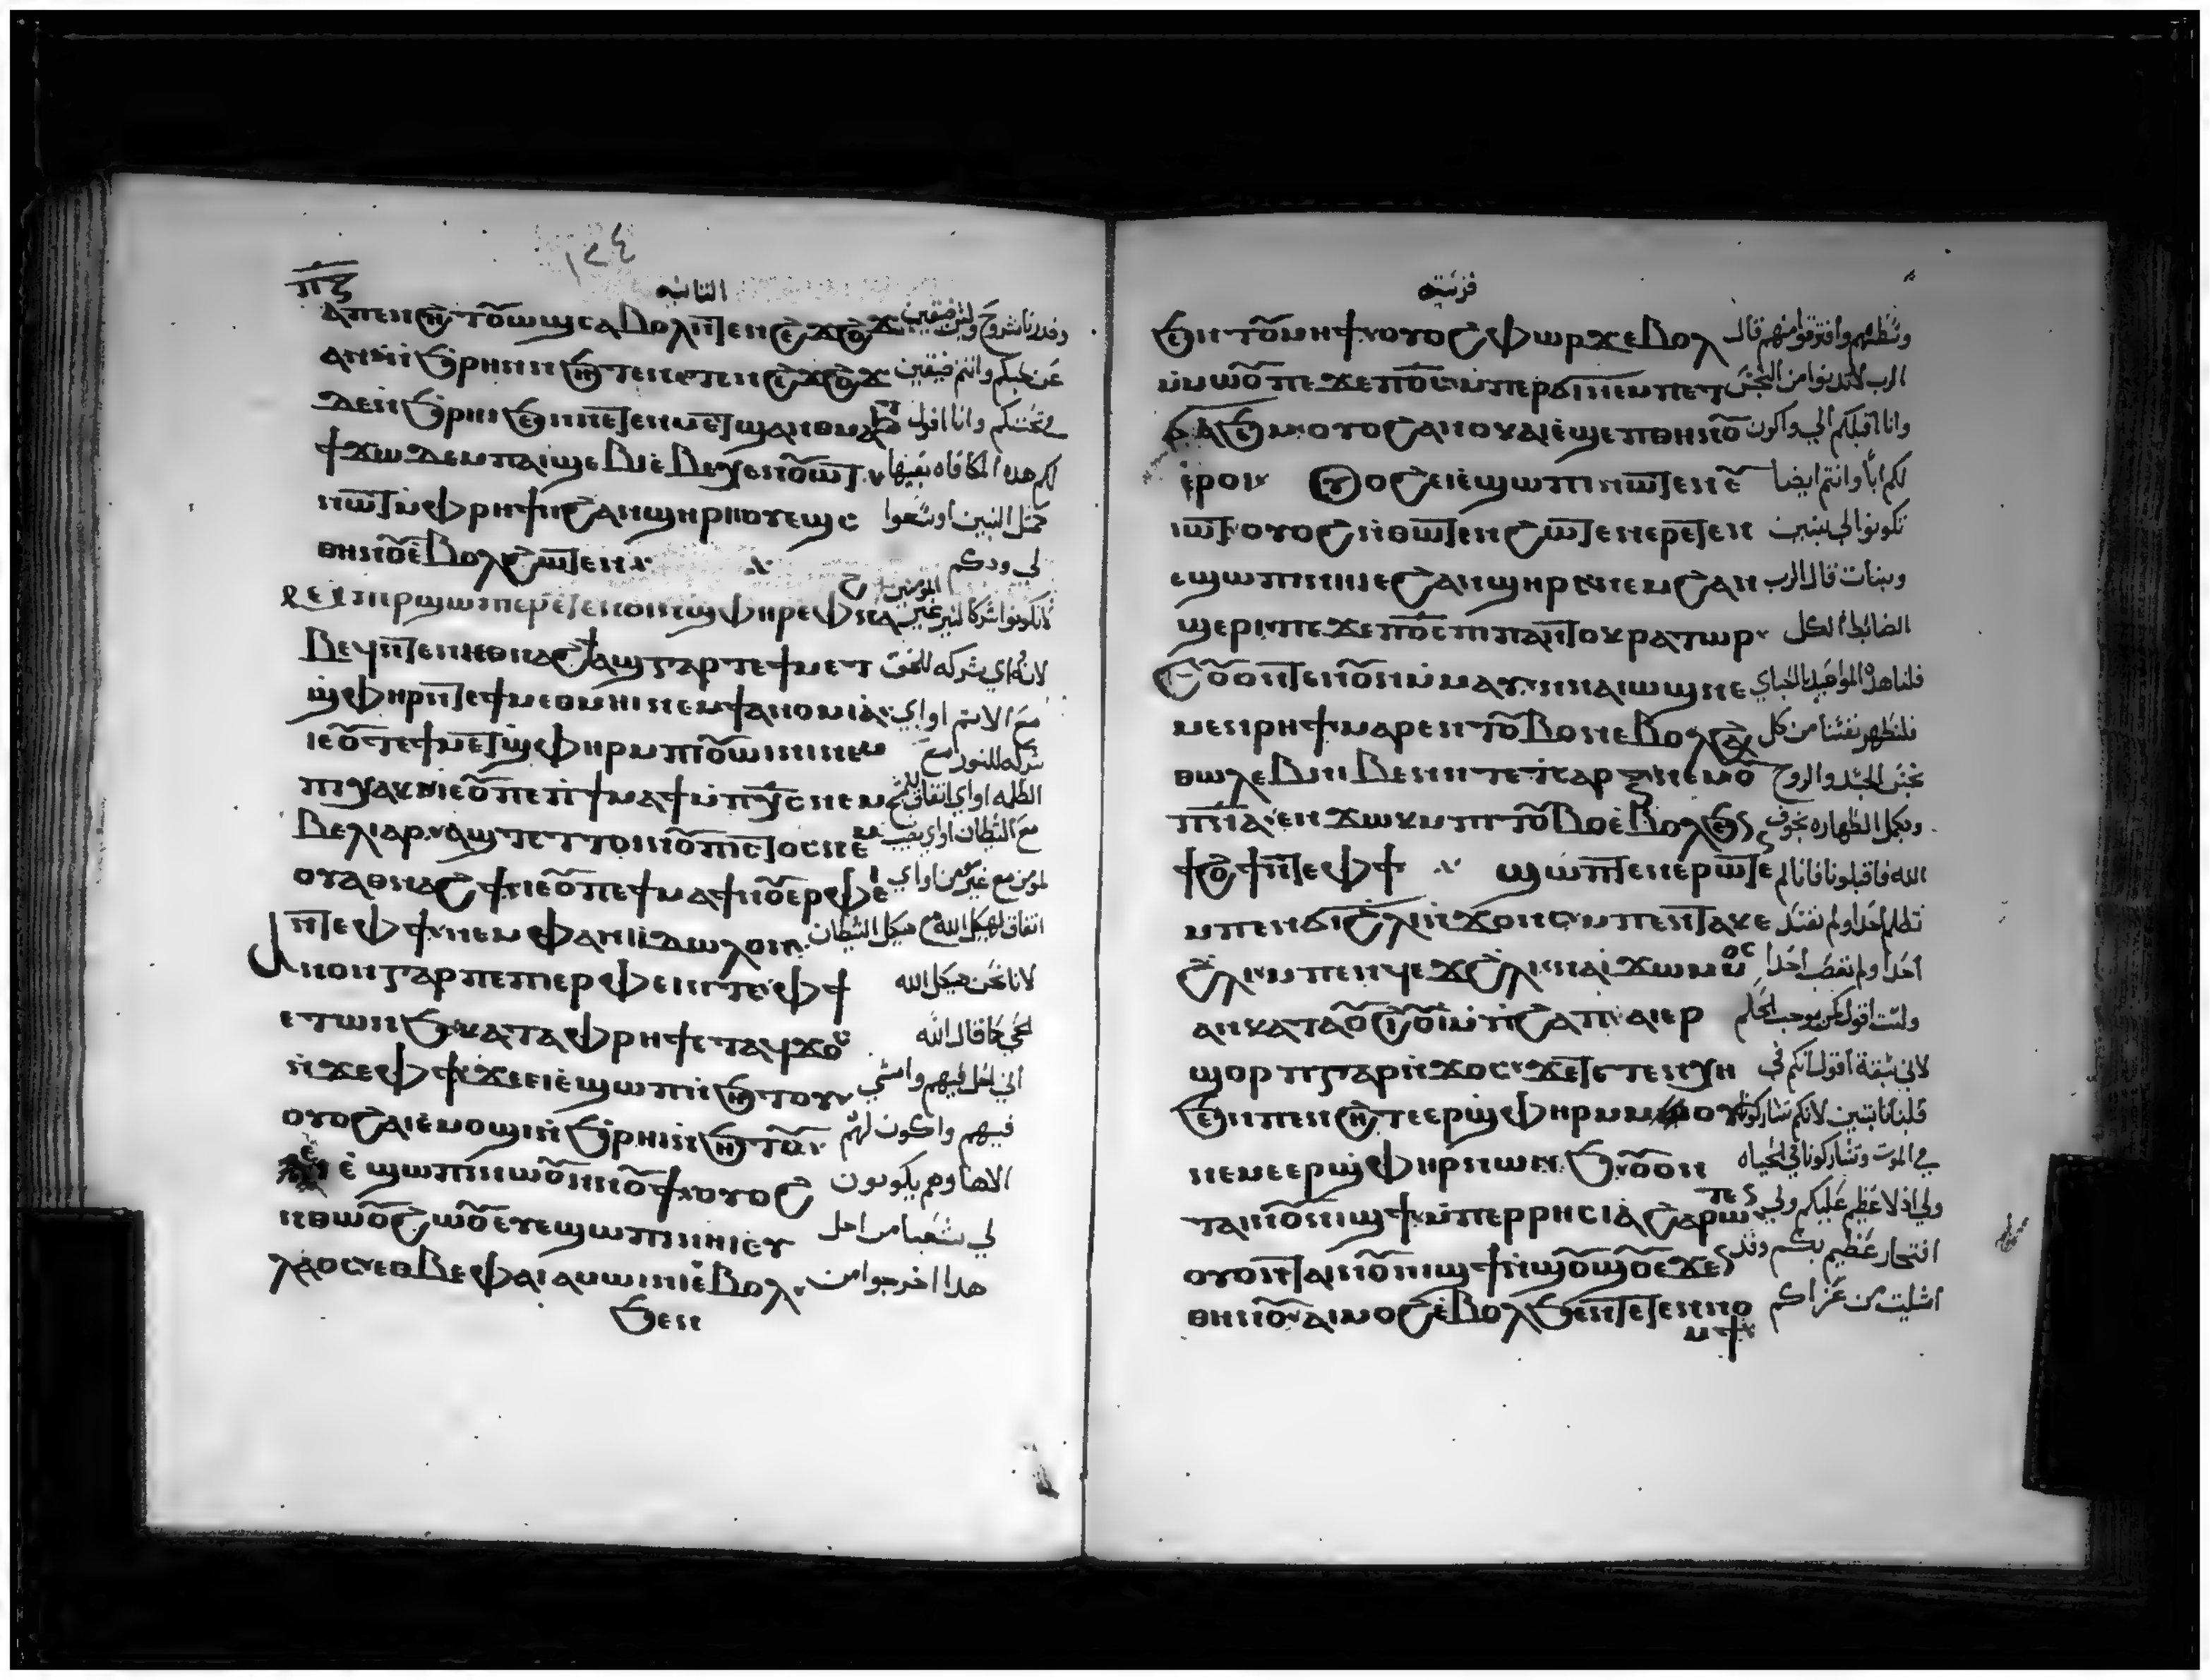 ⲡ̅ⲍ̅
١٢٤
الثانيه
ⲁⲡⲉⲛϩⲏⲧ ⲟⲩⲱϣⲥⲁⲃⲟⲗ ⲛ̀ⲧⲉⲛϩⲉϫϩⲱϫ
ⲁⲛ ⲛ̀ϧⲣⲏⲓ ⲛ̀ϧⲏⲧⲉⲛ ⲧⲉⲧⲉⲛϩⲉϫϩⲱϫ وانتم ضيقين
ⲇⲉⲛ̀ϧⲣⲏⲓ ϧⲉⲛⲛⲉⲧⲉⲛⲙⲉⲧϣⲁⲛⲑⲙⲁϧⲧ وانا اقول
ϯϫⲱ ⲇⲉⲙⲡⲁⲓϣⲉⲃⲓⲉ̀ⲃⲉⲭⲉⲛⲟⲩⲱⲧ لكم هذه المكافاه بعينها
ⲛⲱⲧⲉⲛ ⲙ̀ⲫⲣⲏϯ ⲛ̀ϩⲁⲛϣⲏⲣⲓ ⲟⲩⲉϣⲥ مثل البنين اوسعوا
ⲑⲏⲛⲟⲩ ⲉ̀ⲃⲟⲗ ϩⲱⲧⲉⲛ لي ودكم
ⲙⲡⲉⲣϣⲱⲡⲓ ⲉⲣⲉⲧⲉⲛⲟⲓ ⲛ̀ϣⲫⲏⲣ ⲉⲫⲛⲁ المومنين
ⲃⲉϥ ⲛ̀ⲧⲉⲛⲓⲁⲑⲛⲁϩϯ ⲁϣ ⲅⲁⲣ ⲧⲉ ϯⲙⲉⲧ لانه اي شركه للحق
ϣ̀ⲫⲏⲣ ⲛ̀ⲧⲉϯⲙⲉⲑⲙⲏⲓ ⲛⲉⲙϯⲁⲛⲟⲙⲓⲁ مع الاثم او اي
ⲓⲉ ⲟⲩ ⲧⲉ ϯⲙⲉⲧϣⲫⲏⲣ ⲙⲡⲓⲟⲩⲱⲓⲛⲓ ⲛⲉⲙ شركه للنور مع
ⲡⲓⲭⲁⲕⲓ ⲓⲉ ⲟⲩ ⲡⲉ ⲡϯⲙⲁϯ ⲙ̀ⲡⲭ̅ⲥ̅ ⲛⲉⲙ الظلمه او اي اتفاق للمسيح
ⲃⲉⲗⲓⲁⲣ ⲁϣ ⲡⲉ ⲧⲧⲟⲓ ⲛⲟⲩⲡⲓⲥⲧⲟⲥ ⲛⲉⲙ مع الشيطان او اي نصيب
ⲟⲩⲁⲑⲛⲁϩϯ ⲓⲉ ⲟⲩ ⲡⲉ ϯⲙⲁϯ ⲛⲟⲩⲉⲣⲫⲉⲓ لمومن مع غير مومن او اي
ⲛ̀ⲧⲉⲫϯ ⲛⲉⲙ ⲫⲁⲛⲓⲓⲇⲱⲗⲟⲛ اتفاق لهيكل الله مع هيكل الشيطان
ⲁⲛⲟⲛ ⲅⲁⲣ ⲡⲉ ⲡⲓⲉⲣⲫⲉⲓ ⲛⲧⲉ ⲫϯ لانا نحن هيكل الله
ⲉⲧⲱⲛϧ ⲕⲁⲧⲁⲫⲣⲏϯ ⲉⲧⲁϥϫⲟⲥ الحي كما قال الله
ⲛ̀ϫⲉⲫϯ ϫⲉ ⲉⲓⲉ̀ϣⲱⲡⲓ ⲛ̀ϧⲏⲧⲟⲩ اني احل فيهم وامشي
ⲟⲩⲟϩ ⲉⲓⲉ̀ⲙⲟϣⲓ ⲛ̀ϧⲣⲏⲓ ⲛ̀ϧⲏⲧⲟⲩ فيهم واكون لهم
ⲉ̀ϣⲱⲡⲓ ⲛⲱⲟⲩ ⲛ̀ⲛⲟⲩϯ ⲟⲩⲟϩ الاها وهم يكونون
ⲛ̀ⲑⲱⲟⲩ ϩⲱⲟⲩ ⲉⲩⲉϣⲱⲡⲓ ⲛⲏⲓ ⲉⲩ لي شعبا من اجل
ⲗⲁⲟⲥ ⲉⲑⲃⲉⲫⲁⲓ ⲁⲙⲱⲓⲛⲓ ⲉ̀ⲃⲟⲗ هذا اخرجوا من
ϧⲉⲛ
قرنتيه
ϧⲉⲛ ⲧⲟⲩⲙⲏϯ ⲟⲩⲟϩ ⲫⲱⲣϫ ⲉⲃⲟⲗ وسطهم وافترقوا منهم قال
ⲙ̀ⲙⲱⲟⲩ ⲡⲉϫⲉⲡ̅ⲟ̅ⲥ̅ ⲙ̀ⲡⲉⲣϭⲓⲛⲉⲙ ⲡⲉⲧ الرب لا تدنوا من النجس
ϭⲁϧⲉⲙ ⲟⲩⲟϩ ⲁⲛⲟⲕ ⲉⲓⲉ̀ϣⲉⲡ ⲑⲏⲛⲟⲩ وانا اقبلكم الي واكون
ⲉ̀ⲣⲟⲓ ⲟⲩⲟϩ ⲉⲓⲉ̀ϣⲱⲡⲓ ⲛⲱⲧⲉⲛ ⲉⲩ لكم ابا وانتم ايضا
ⲓⲱⲧ ⲟⲩⲟϩ ⲛ̀ⲑⲱⲧⲉⲛ ϩⲱⲧⲉⲛ ⲉⲣⲉⲧⲉⲛ تكونوا الي بنين
ⲉϣⲱⲡⲓ ⲛⲏⲓ ⲉϩⲁⲛϣⲏⲣⲓ ⲛⲉⲙ ϩⲁⲛ وبنات قال الرب
ϣⲉⲣⲓ ⲡⲉϫⲉⲡ̅ⲟ̅ⲥ̅ ⲡⲓⲡⲁⲛⲧⲟⲕⲣⲁⲧⲱⲣ الضابط الكل
ⲉⲟⲩⲟⲛⲧⲉⲛ ⲟⲩⲛ ⲙ̀ⲙⲁⲩ ⲛⲛⲁⲓⲱϣ ⲛⲉ فلنا هذه المواعيد يا احباي
ⲙⲉⲛⲣⲏϯ ⲙⲁⲣⲉⲛⲧⲟⲩⲃⲟⲛ ⲉⲃⲟⲗϩⲁ فلنطهر نفسنا من كل
ⲑⲱⲗⲉⲃ ⲛⲓⲃⲉⲛ ⲛⲧⲉ ⲧⲥⲁⲣⲝ ⲛⲉⲙ ⲟⲩ نجس الجسد والروح
ⲡ̅ⲛ̅ⲁ̅ ⲉⲛϫⲱⲕ ⲙⲡⲓⲧⲟⲩⲃⲟ ⲉ̀ⲃⲟⲗ ϧⲉⲛ ونكمل الطهاره بخوف
ϯϩⲟϯ ⲛ̀ⲧⲉⲫϯ ϣⲟⲡⲧⲉⲛ ⲉⲣⲱⲧⲉⲛ الله فاقبلونا فانا لم
ⲙⲡⲉⲛϭⲓ ϩⲗⲓ ⲛ̀ϫⲟⲛⲥ ⲙⲡⲉⲛⲧⲁⲕⲉ نظلم احدا ولم نفسد
ϩⲗⲓ ⲙⲡⲉⲛϥⲉϫ ϩⲗⲓ ⲛⲁⲓ ϫⲱ ⲙⲙⲟⲥ احدا ولم نغصب احدا
ⲁⲛ ⲕⲁⲧⲁ ⲟⲩϩⲓⲟⲩⲓ ⲙ̀ⲡϩⲁⲡ ⲁⲓⲉⲣ ولست اقول كمن يوجب الحكم
ϣⲟⲣⲡ ⲅⲁⲣ ⲛ̀ϫⲟⲥ ϫⲉ ⲧⲉⲧⲉⲛⲭⲏ لاني سبقة اقول انكم في
ϧⲉⲛ ⲡⲉⲛϩⲏⲧ ⲉⲉⲣϣⲫⲏⲣ ⲙⲙⲟⲩ قلبنا ثابتين لانكم تشاركونا
ⲛⲉⲙ ⲉⲉⲣϣ̀ⲫⲏⲣ ⲛ̀ⲱⲛϧ ⲟⲩⲟⲛ في الموت وتشاركونا في الحياه
ⲧⲁⲓ ⲛⲟⲩⲛⲓϣϯ ⲙ̀ⲡⲁⲣⲣⲏⲥⲓⲁ ϩⲁⲣⲱⲧⲉⲛ
ⲟⲩⲟⲛⲧⲁⲓ ⲛⲟⲩⲛⲓϣϯ ⲛ̀ϣⲟⲩϣⲟⲩ ⲉϫⲉⲛ افتخار عظيم بكم وقد
ⲑⲏⲛⲟⲩ ⲁⲓⲙⲟϩ ⲉ̀ⲃⲟⲗ ϧⲉⲛ ⲧⲉⲧⲉⲛⲛⲟ امتليت من عزاكم
ⲙϯ